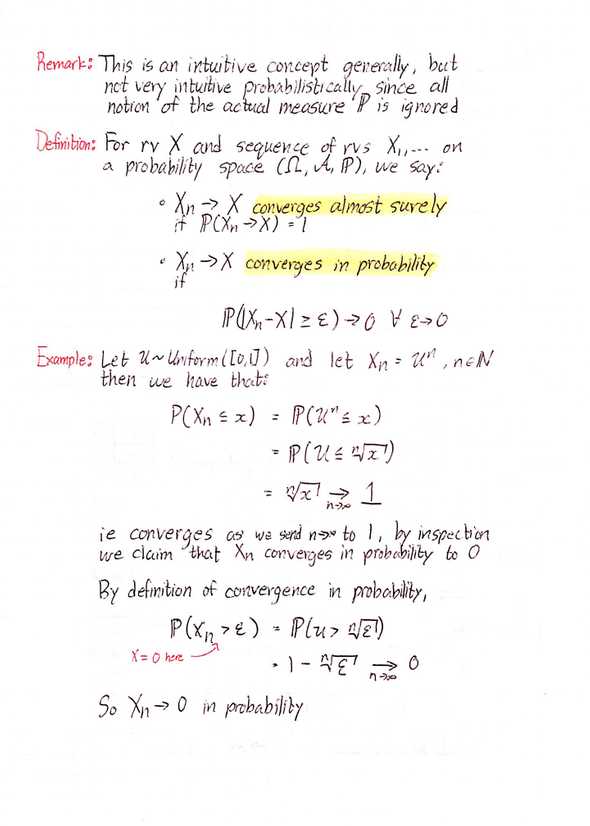 Remark: This is an intuitive concept generally, but
not very intuitive probabilistically, since all
notion of the actual measure ℙ is ignored
Definition: For rv X and sequence of rvs X₁,... on
a probability space (Ω, 𝒜, ℙ), we say:
• Xₙ → X converges almost surely
if ℙ(Xₙ → X) = 1
• Xₙ → X converges in probability
if
ℙ(|Xₙ-X| ≥ ε) → 0 ∀ ε→0
Example: Let U ~ Uniform([0,1]) and let Xₙ = Uⁿ, n∈ℕ
then we have that:
P(Xₙ ≤ x) = ℙ(Uⁿ ≤ x)
= ℙ(U ≤ ⁿ√x)
= ⁿ√x → 1
n→∞
ie converges as we send n→∞ to 1, by inspection
we claim that Xₙ converges in probability to 0
By definition of convergence in probability,
ℙ(Xₙ > ε) = ℙ(U > ⁿ√ε)
X = 0 here
= 1 - ⁿ√ε → 0
n→∞
So Xₙ → 0 in probability